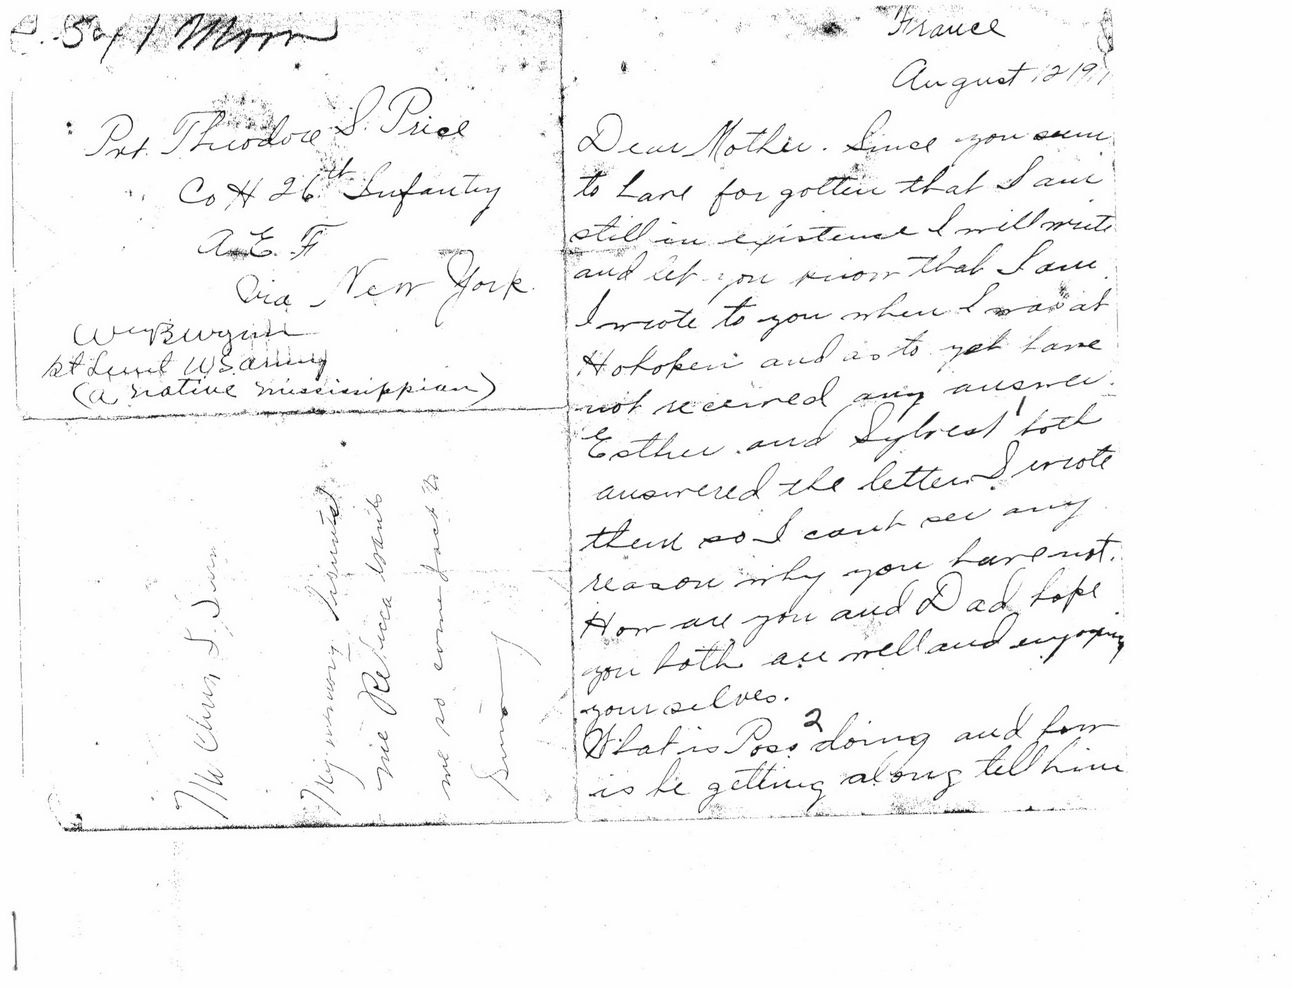 Pvt. Theodore S. Price
Co H 26th Infantry
A. E. F
Via New York.
1st Lieut US Army
(a native mississippian)
France
August 12 191
Dear Mother. Since you seem
to have forgotten that I am
still in existense I will write
and let you know that I am.
I wrote to you when I was at
Hoboken and as to yet have
not received any answer.
Esther and Sylvest both
answered the letters I wrote
them so I cant see any
reason why you have not.
How are you and Dad hope
you both are well and enjoying
yourselves.
2
What is Poss doing and how
is he getting along tell him
My memory
me Rebecca
me so come back to